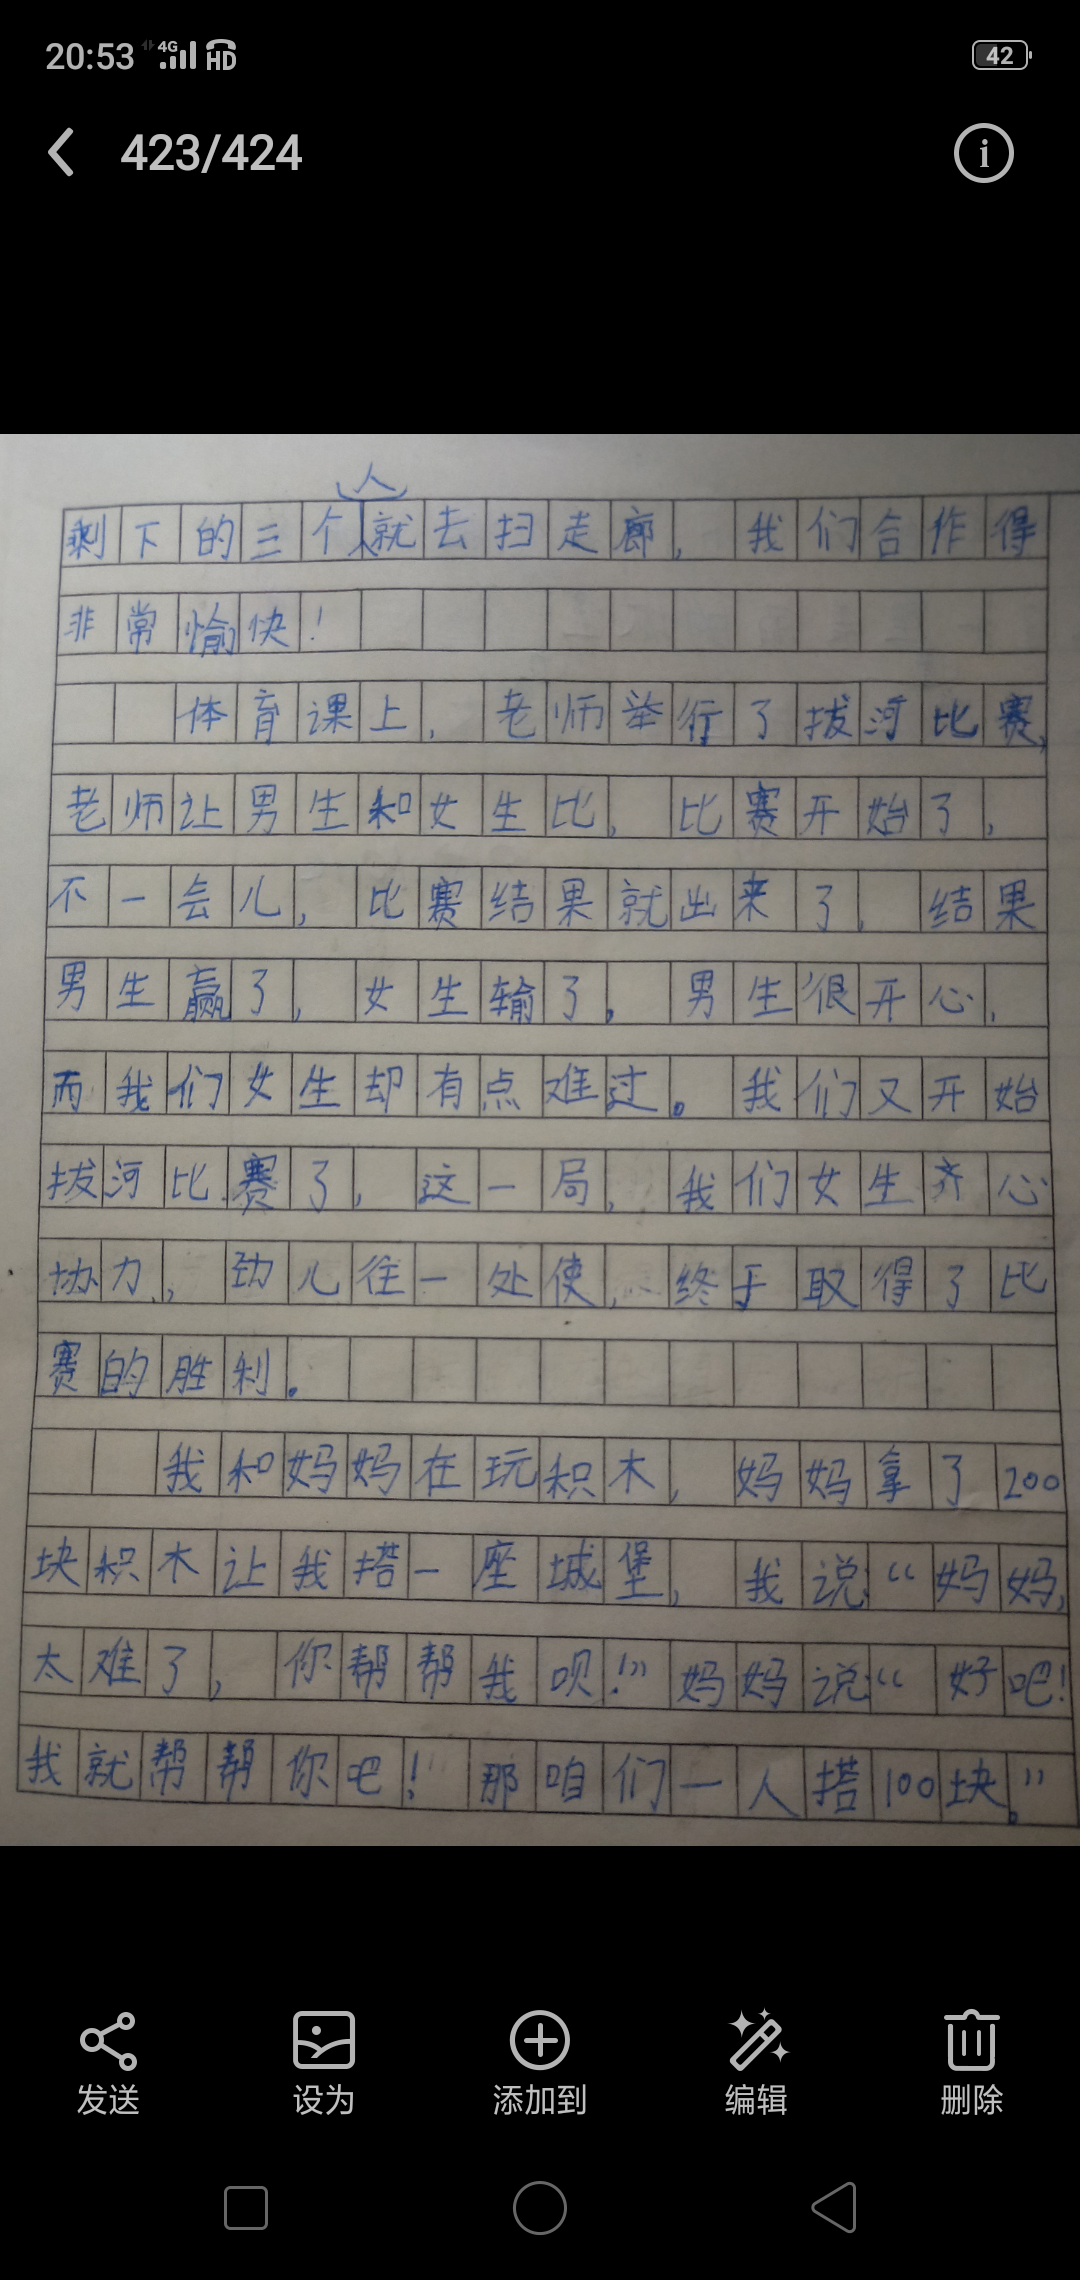 20:53 4G HD 42
423/424
剩下的三个人就去扫走廊，我们合作得
非常愉快！
体育课上，老师举行了拔河比赛，
老师让男生和女生比，比赛开始了，
不一会儿，比赛结果就出来了，结果
男生赢了，女生输了。男生很开心，
而我们女生却有点难过。我们又开始
拔河比赛了，这一局，我们女生齐心
协力，劲儿往一处使，终于取得了比
赛的胜利。
我和妈妈在玩积木，妈妈拿了200
块积木让我搭一座城堡，我说“妈妈，
太难了，你帮帮我呗！”妈妈说“好吧！
我就帮帮你吧！那咱们一人搭100块。”
发送 设为 添加到 编辑 删除